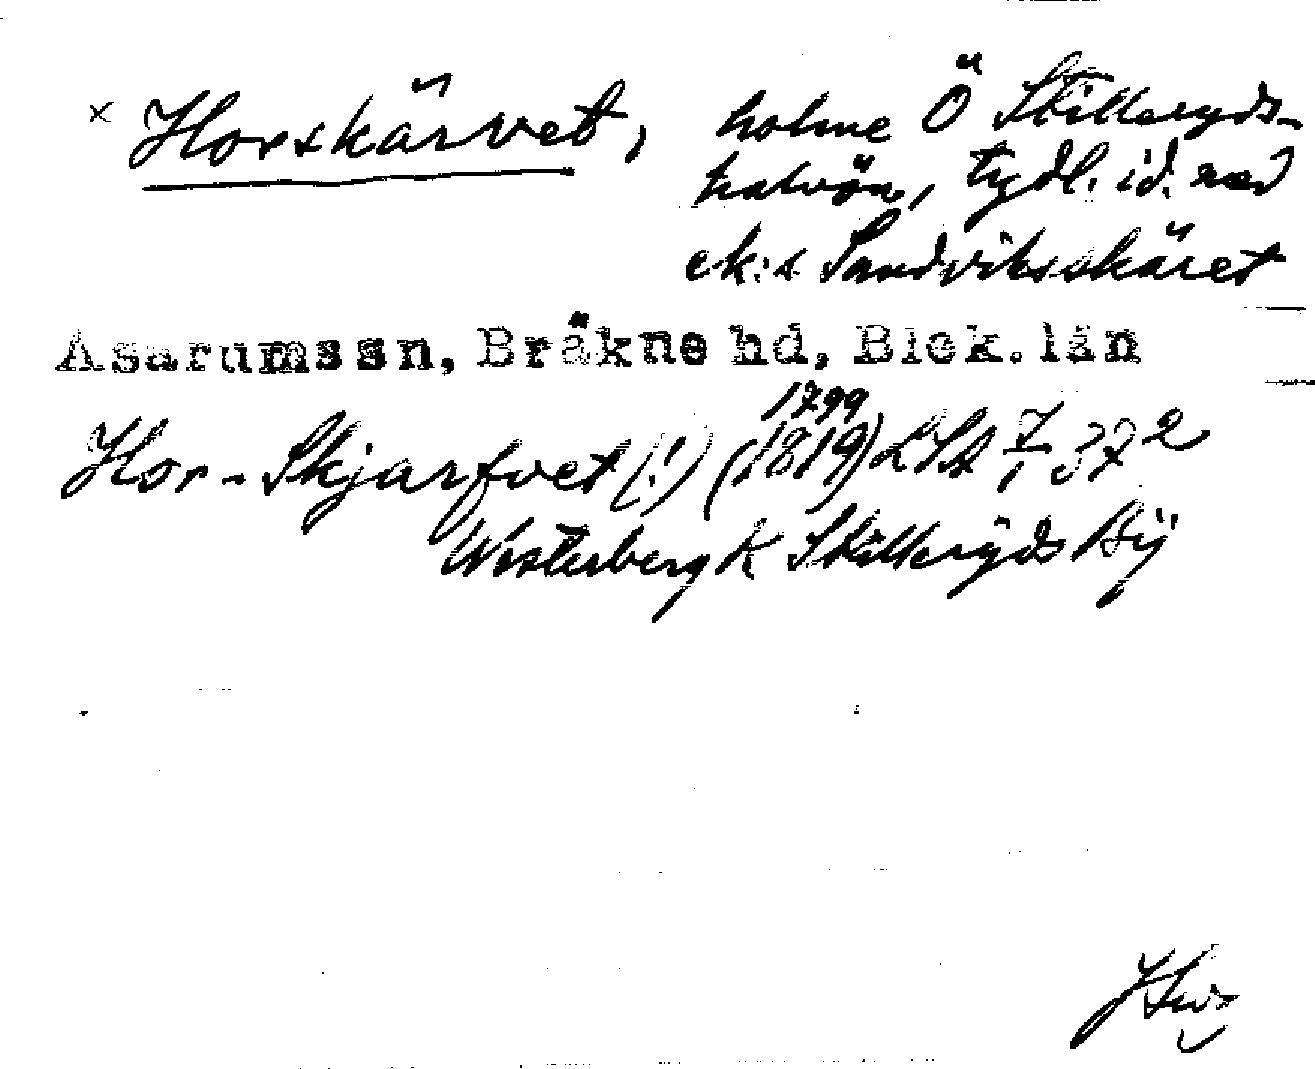 × Horskärvet, holme Ö Stilleryds-
halvön, tydl. id. med
ek:s Sandviksskäret
Asarums sn, Bräkne hd, Blek. län
1799
Hor-Skjarfvet (!) (1819) LSA 7/1 372
Westerberg K Stilleryds By